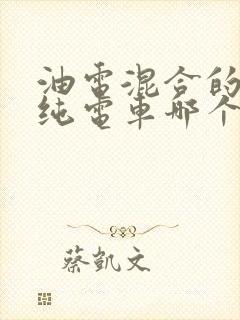 油電混合的
纯電車哪个
蔡凱文